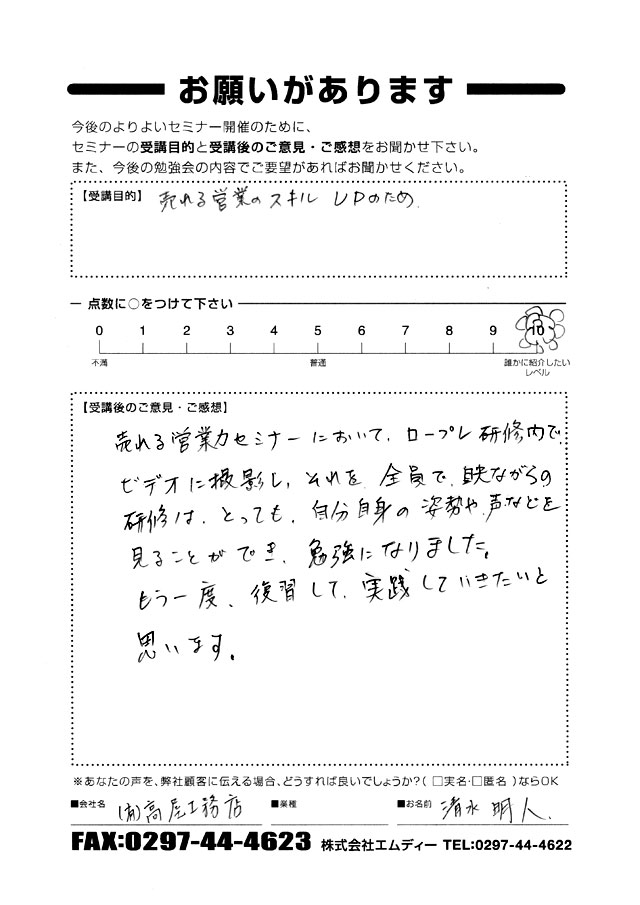 お願いがあります
今後のよりよいセミナー開催のために、
セミナーの受講目的と受講後のご意見・ご感想をお聞かせ下さい。
また、今後の勉強会の内容でご要望があればお聞かせください。
【受講目的】 売れる営業のスキル UPのため
点数に○をつけて下さい
0 1 2 3 4 5 6 7 8 9 10
不満 普通 誰かに紹介したい
レベル
【受講後のご意見・ご感想】
売れる営業力セミナーにおいて、ロープレ研修内で、
ビデオに撮影し、それを全員で、見ながらの
研修は、とっても、自分自身の姿勢や、声などを
見ることができ、勉強になりました。
もう一度、復習して、実践していきたいと
思います。
※あなたの声を、弊社顧客に伝える場合、どうすれば良いでしょうか?( □実名・□匿名 )ならOK
■会社名 (有)高尾工務店 ■業種 ■お名前 清水 明人
FAX:0297-44-4623 株式会社エムディー TEL:0297-44-4622